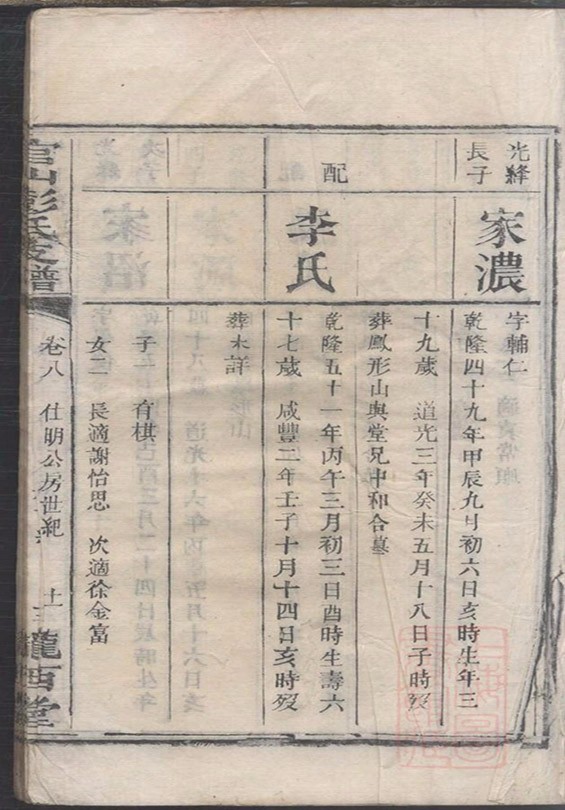 光絳
長子
家濃
字輔仁
乾隆四十九年甲辰九月初六日亥時生年三
十九歲 道光三年癸未五月十八日子時歿
葬鳳形山與堂兄中和合墓
配
李氏
乾隆五十一年丙午三月初三日酉時生壽六
十七歲 咸豐二年壬子十月十四日亥時歿
葬未詳
子 有棋
女二 長適謝怡思 次適徐金富
官山彭氏支譜
卷八 仕明公房世紀
隴西堂